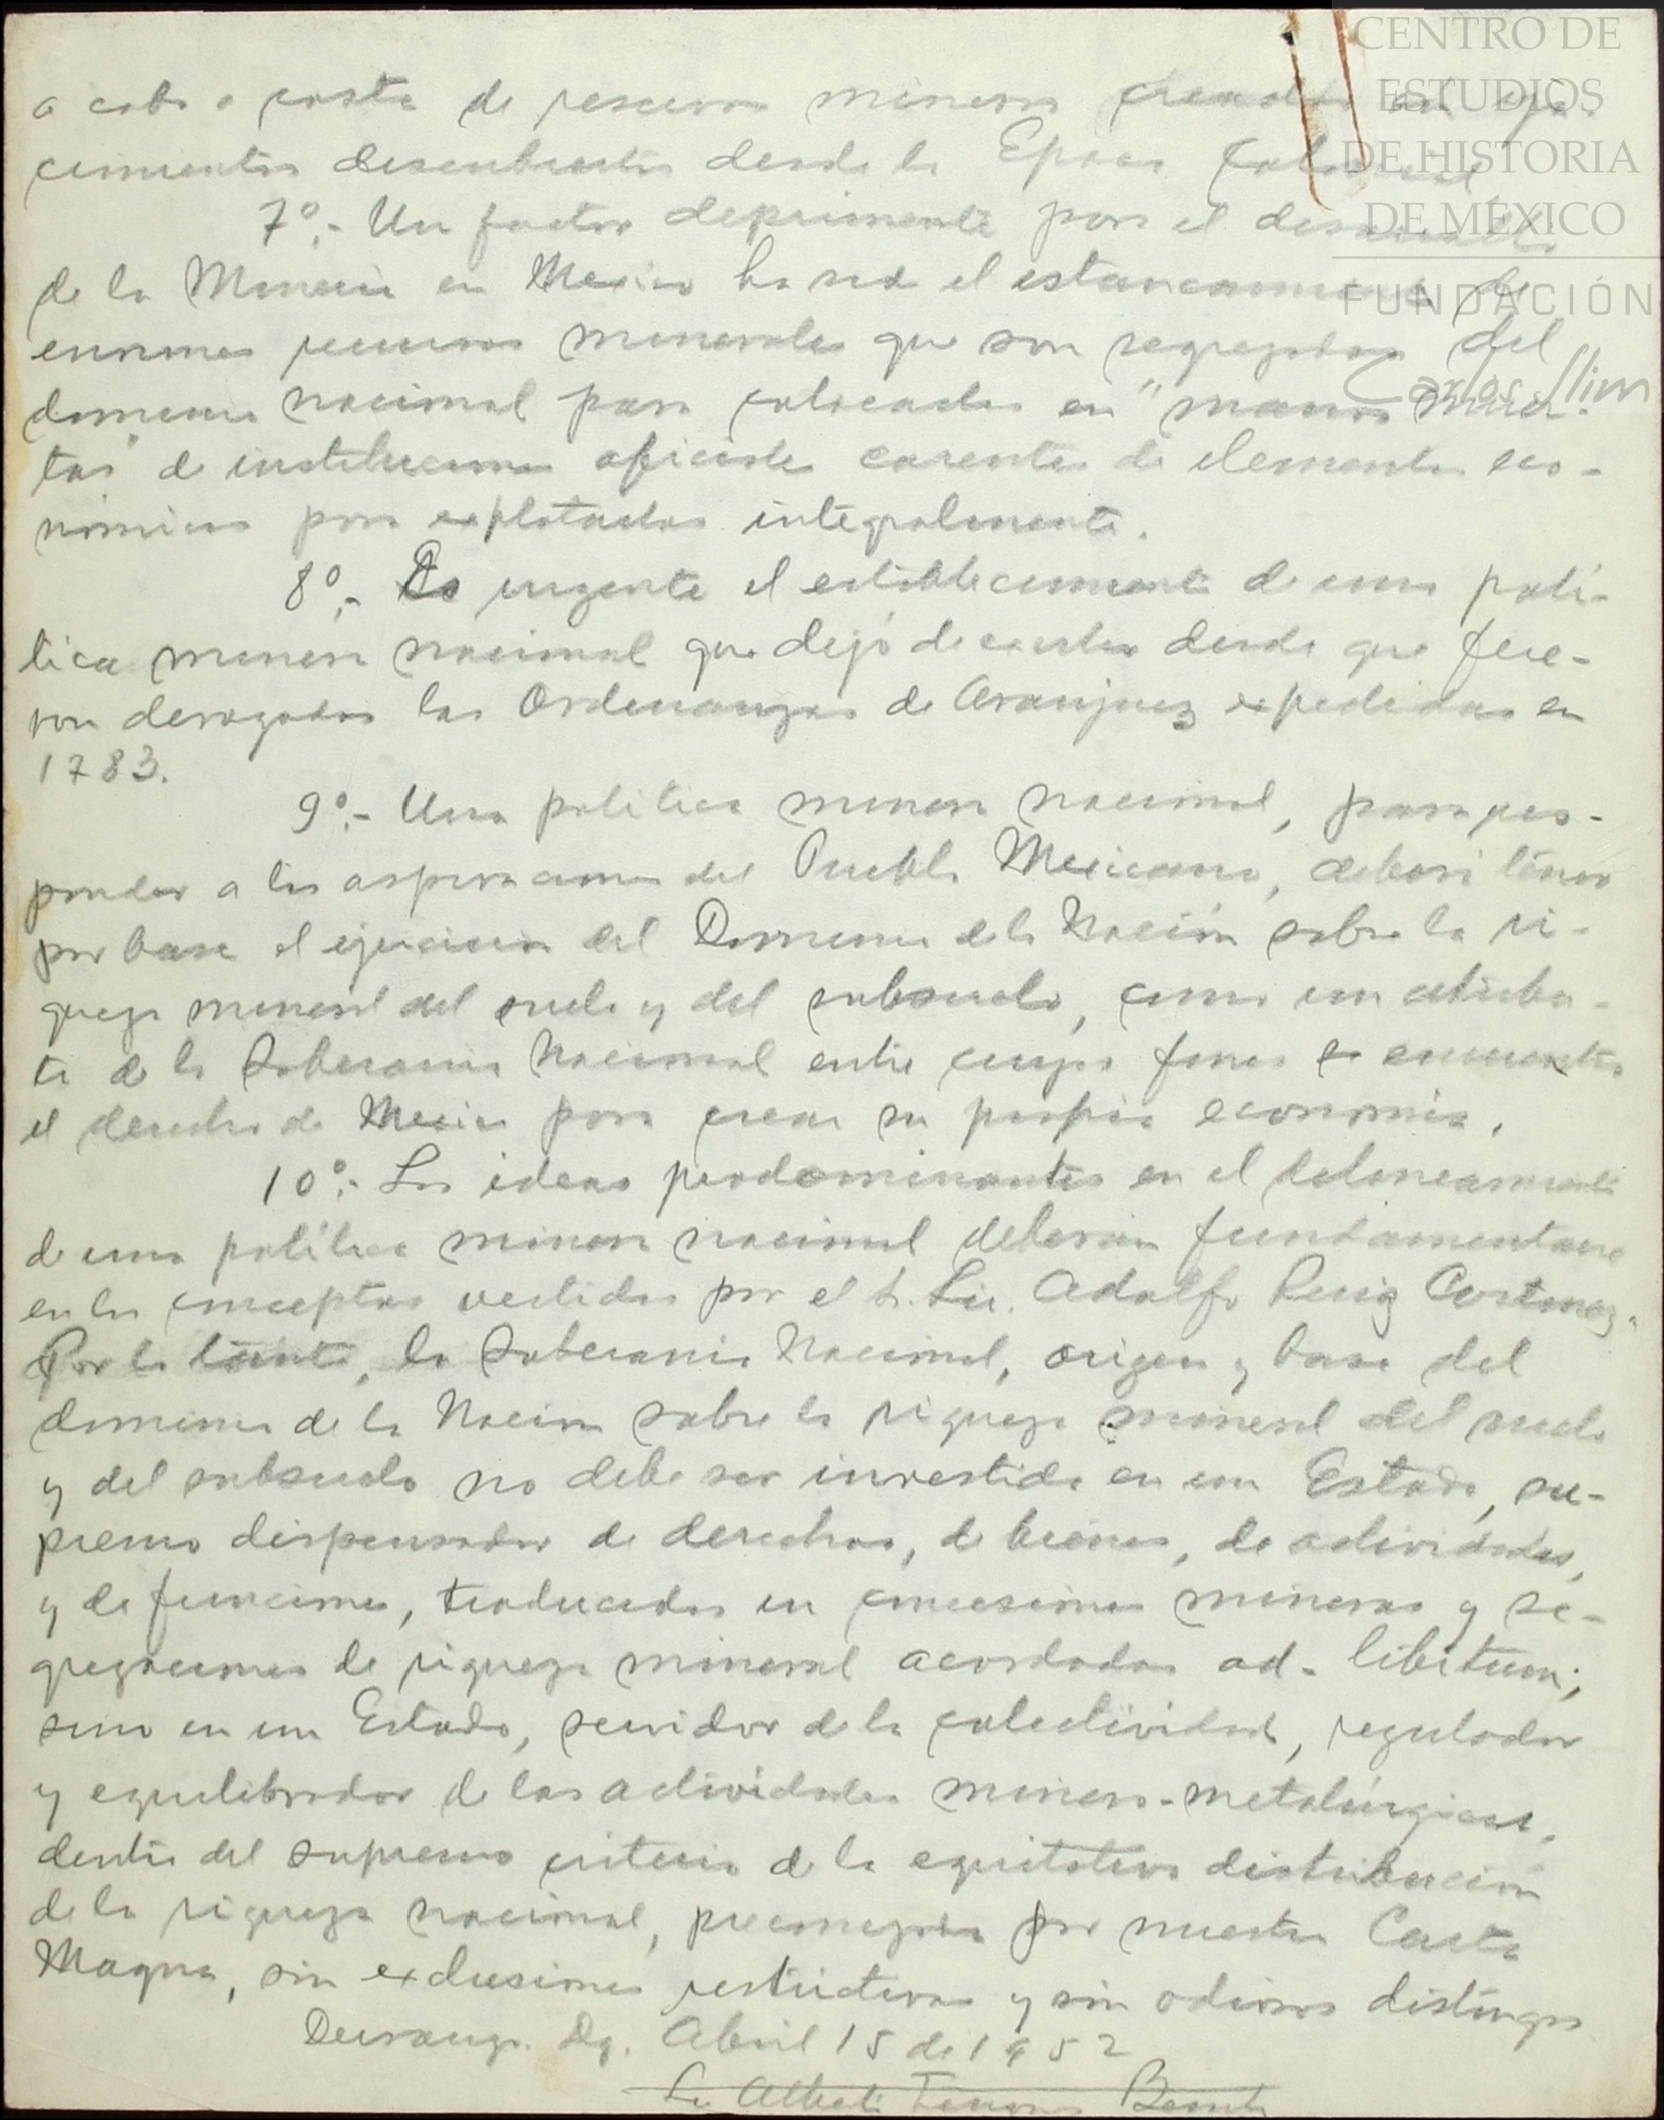 CENTRO DE
ESTUDIOS
DE HISTORIA
DE MÉXICO
FUNDACIÓN
Carlos Slim
a cabo a costa de reservas mineras creadas en ya-
cimientos descubiertos desde la Epoca Colonial
7º.- Un factor deprimente para el desarrollo
de la Mineria en Mexico ha sido el estancamiento de
enormes recursos minerales que son segregados del
dominio nacional para colocarlos en "manos muer-
tas" de instituciones oficiales carentes de elementos eco-
nómicos para explotarlos integralmente.
8º.- Es urgente el establecimiento de una polí-
tica minera nacional que dejó de existir desde que fue-
ron derogadas las Ordenanzas de Aranjuez expedidas en
1783.
9º.- Una politica minera nacional, para res-
ponder a las aspiraciones del Pueblo Mexicano, deberá tener
por base el ejercicio del Dominio de la Nación sobre la ri-
queza mineral del suelo y del subsuelo, como un atribu-
to de la Soberania Nacional entre cuyos fines se encuentra
el derecho de Mexico para crear su propia economia.
10º.- Las ideas predominantes en el delineamiento
de una política minera nacional deberán fundamentarse
en los conceptos vertidos por el S. Lic. Adolfo Ruiz Cortinez.
Por lo tanto, la Soberania Nacional, origen y base del
dominio de la Nacion sobre la riqueza mineral del suelo
y del subsuelo no debe ser investida en un Estado, su-
premo dispensador de derechos, de bienes, de actividades,
y de funciones, traducidas en concesiones mineras y se-
gregaciones de riqueza mineral acordadas ad-libitum;
sino en un Estado, servidor de la colectividad, regulador
y equilibrador de las actividades minero-metalúrgicas,
dentro del supremo criterio de la equitativa distribución
de la riqueza nacional, preconizada por nuestra Carta
Magna, sin exclusiones restrictivas y sin odiosos distingos
Durango. Dg. Abril 15 de 1952
Lic Alberto Terrones Benitez